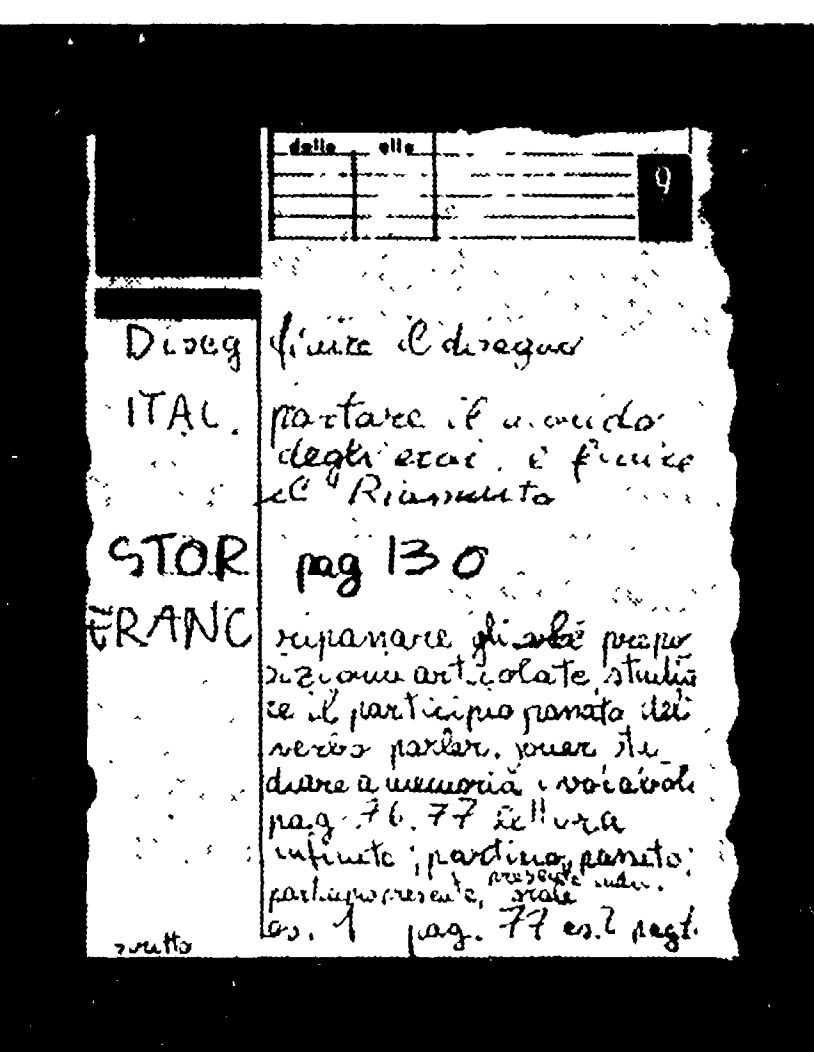 dalle alle
9
Diseg finire il disegno
ITAL. portare il mondo
degli eroi. e finire
il "Riassunto
STOR pag 130
FRANC ripassare gli prepo
sizioni articolate, studia
re il participio passato del
verbo parler. jouer stu_
diare a memoria i vocaboli
pag. 76. 77 lettura
infinito; passato;
presente
participio presente, orale
scritto es. 1 pag. 77 es. 2